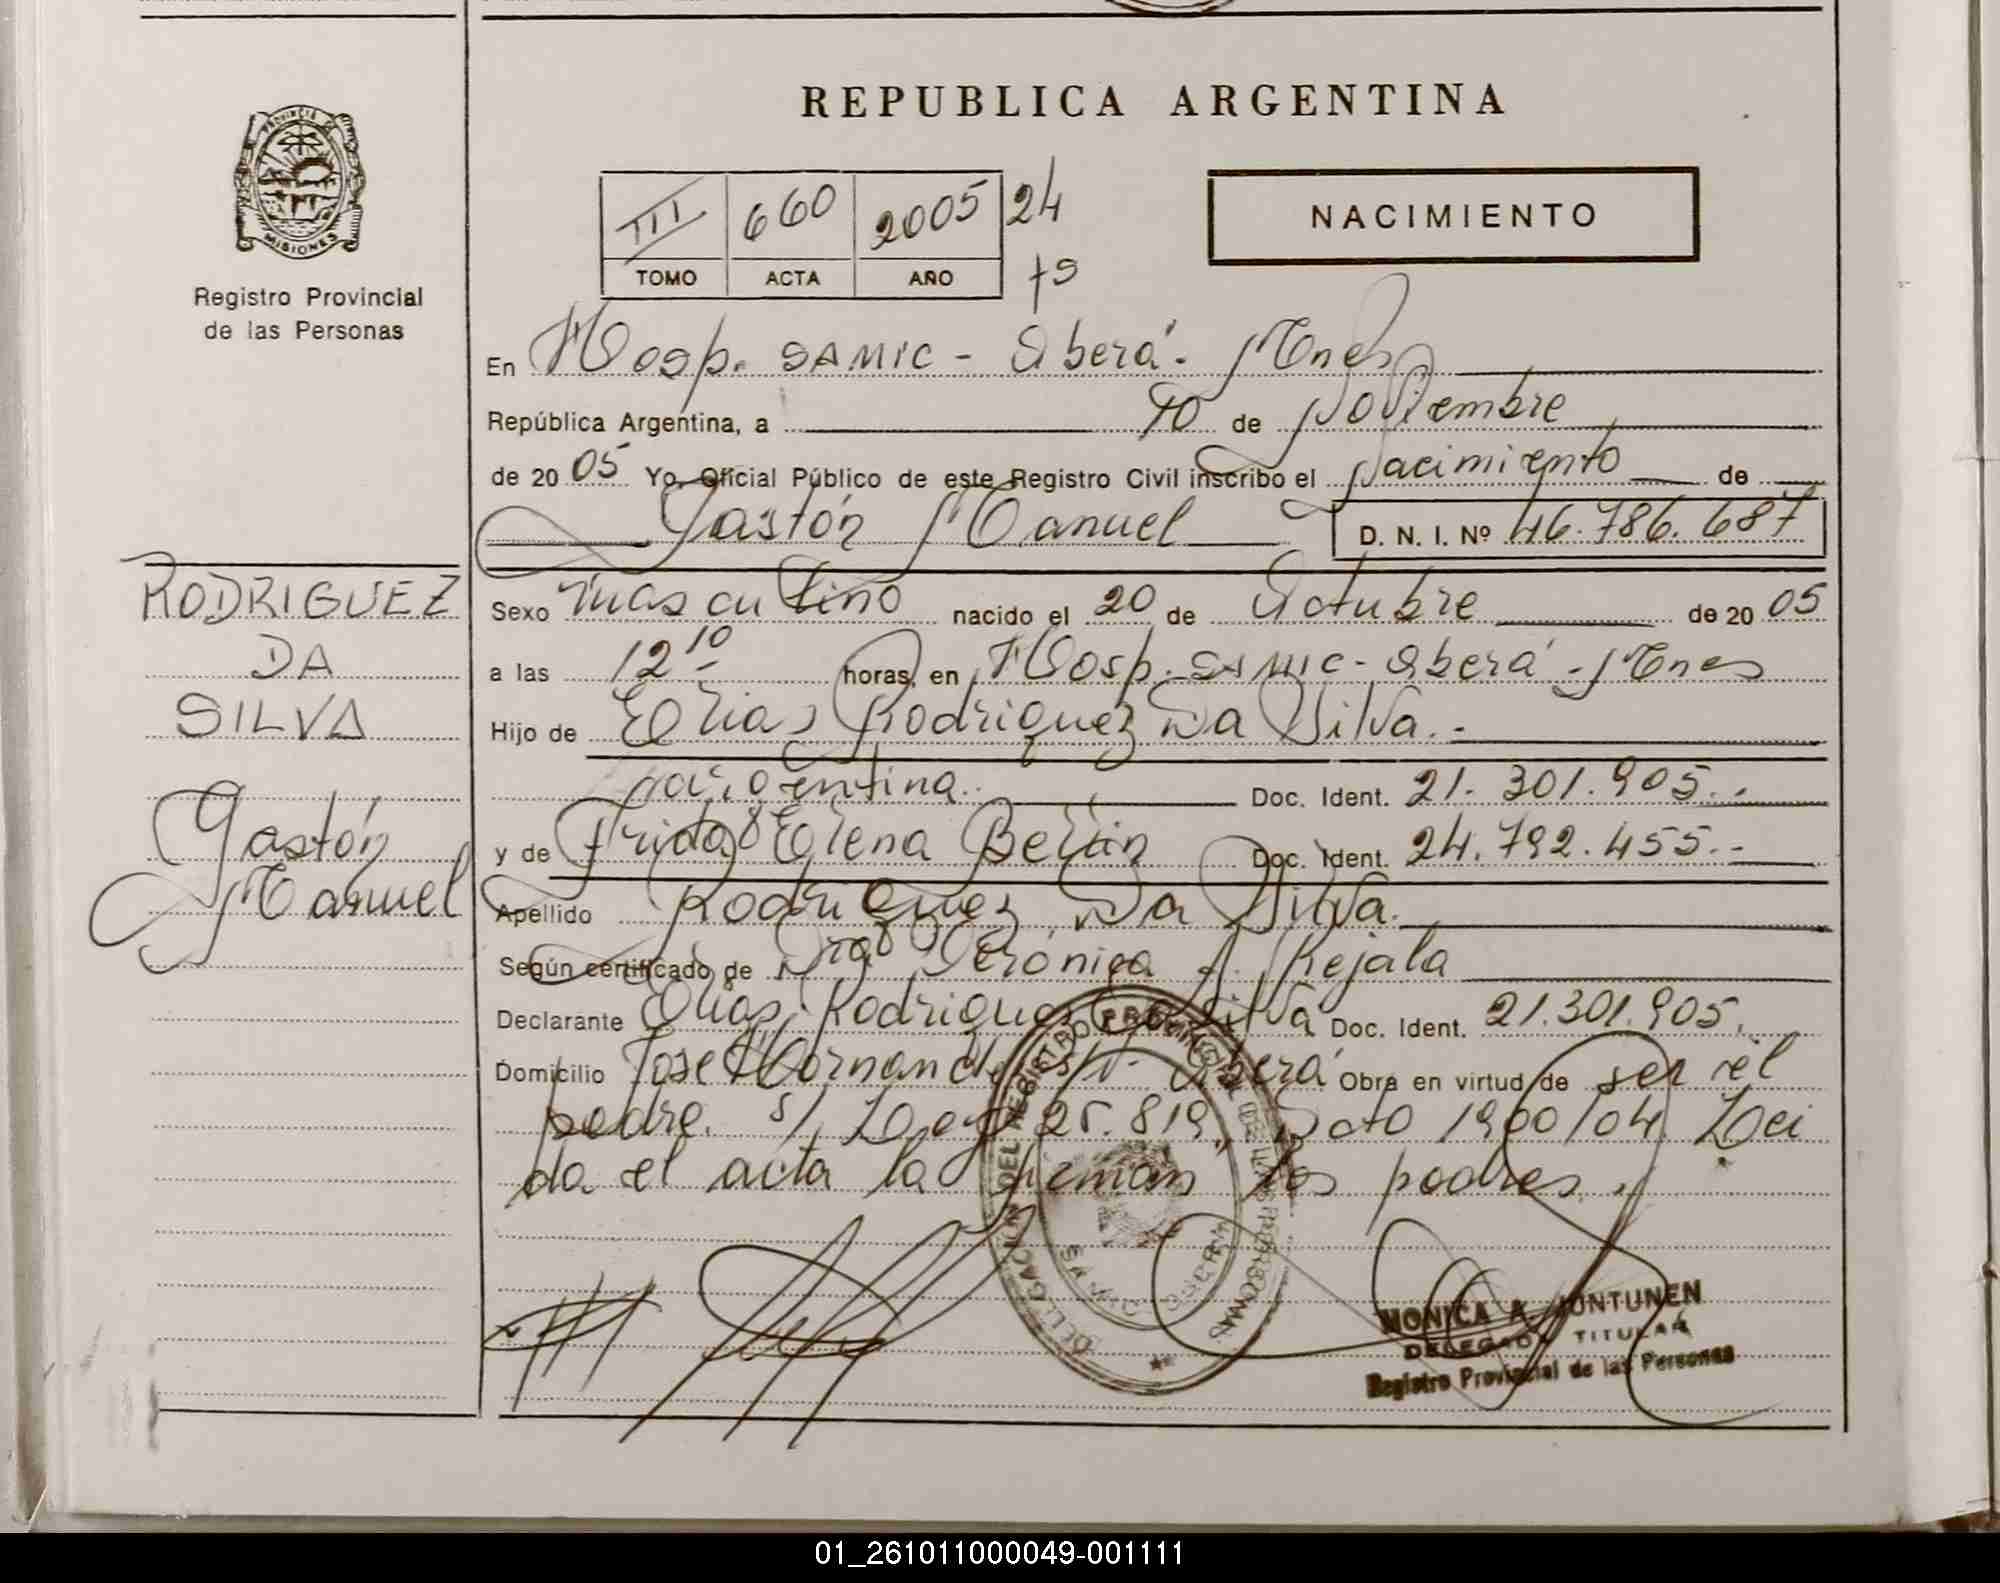 REPUBLICA ARGENTINA
PROVINCIA DE
MISIONES
Registro Provincial
de las Personas
III 660 2005 24
TOMO ACTA AÑO
NACIMIENTO
En Hosp. SAMIC - Oberá - Mnes
República Argentina, a 10 de Noviembre
de 2005 Yo, Oficial Público de este Registro Civil inscribo el Nacimiento de
Gastón Manuel D. N. I. Nº 46.786.687
RODRIGUEZ
DA
SILVA
Gastón
Manuel
Sexo masculino nacido el 20 de Octubre de 2005
a las 12 10 horas, en Hosp. SAMIC - Oberá - Mnes
Hijo de Elias Rodriguez Da Silva.-
nac. argentina. Doc. Ident. 21.301.905.-
y de Frida Elena Doc. Ident. 24.792.455.-
Apellido Rodriguez Da Silva.
Según certificado de Dra Verónica A. Rejala
Declarante Elias Rodriguez Da Silva Doc. Ident. 21.301.905.
Domicilio José Hernandez s/n - Oberá Obra en virtud de ser el
padre. s/ Ley 25.819, Dcto 1900/04. Lei
da el acta la firman los padres.
DELEGACION DEL REGISTRO PROVINCIAL DE LAS PERSONAS
MONICA A. JUNTUNEN
DELEGADA TITULAR
Registro Provincial de las Personas
01_261011000049-001111